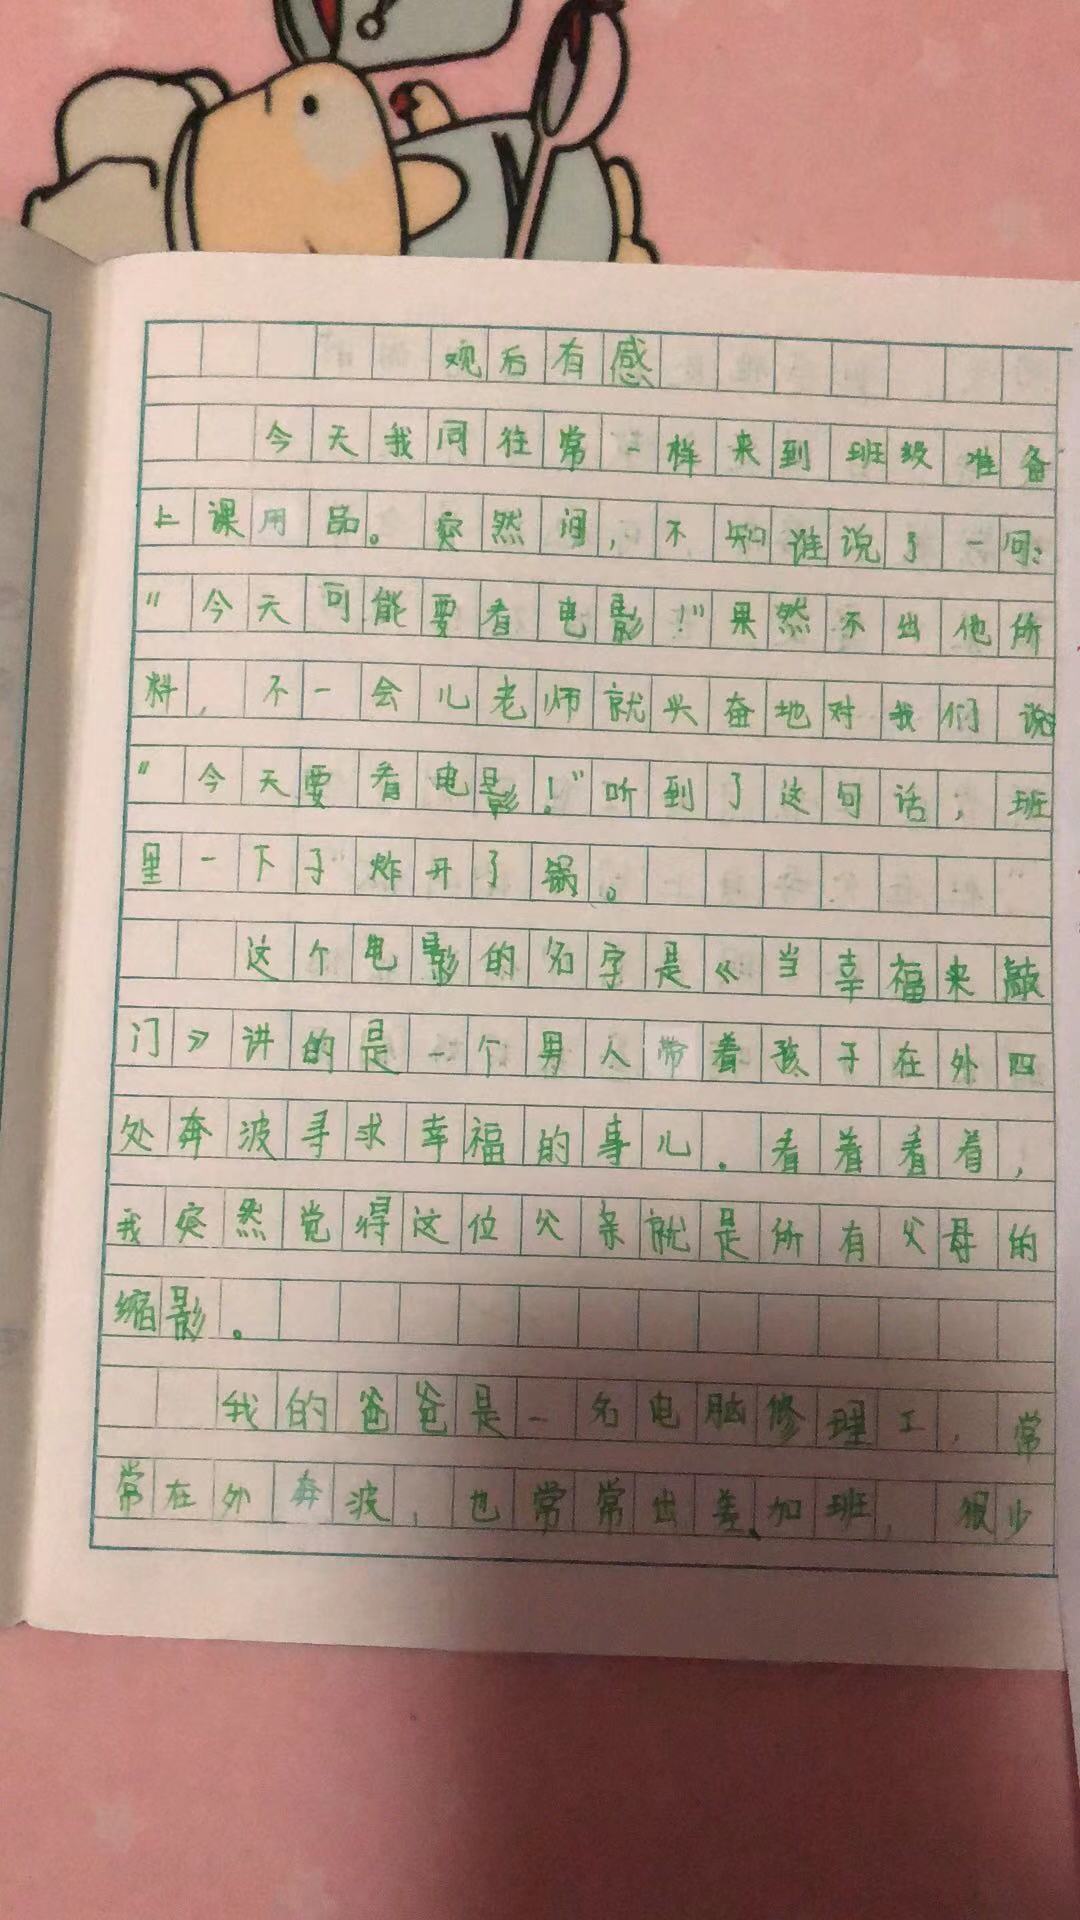 观后有感
今天我同往常一样来到班级准备
上课用品。突然间,不知谁说了一句:
"今天可能要看电影!"果然不出他所
料,不一会儿老师就兴奋地对我们说:
"今天要看电影!"听到了这句话,班
里一下子炸开了锅。
这个电影的名字是《当幸福来敲
门》讲的是一个男人带着孩子在外四
处奔波寻求幸福的事儿.看着看着,
我突然觉得这位父亲就是所有父母的
缩影。
我的爸爸是一名电脑修理工,常
常在外奔波,也常常出差、加班,很少